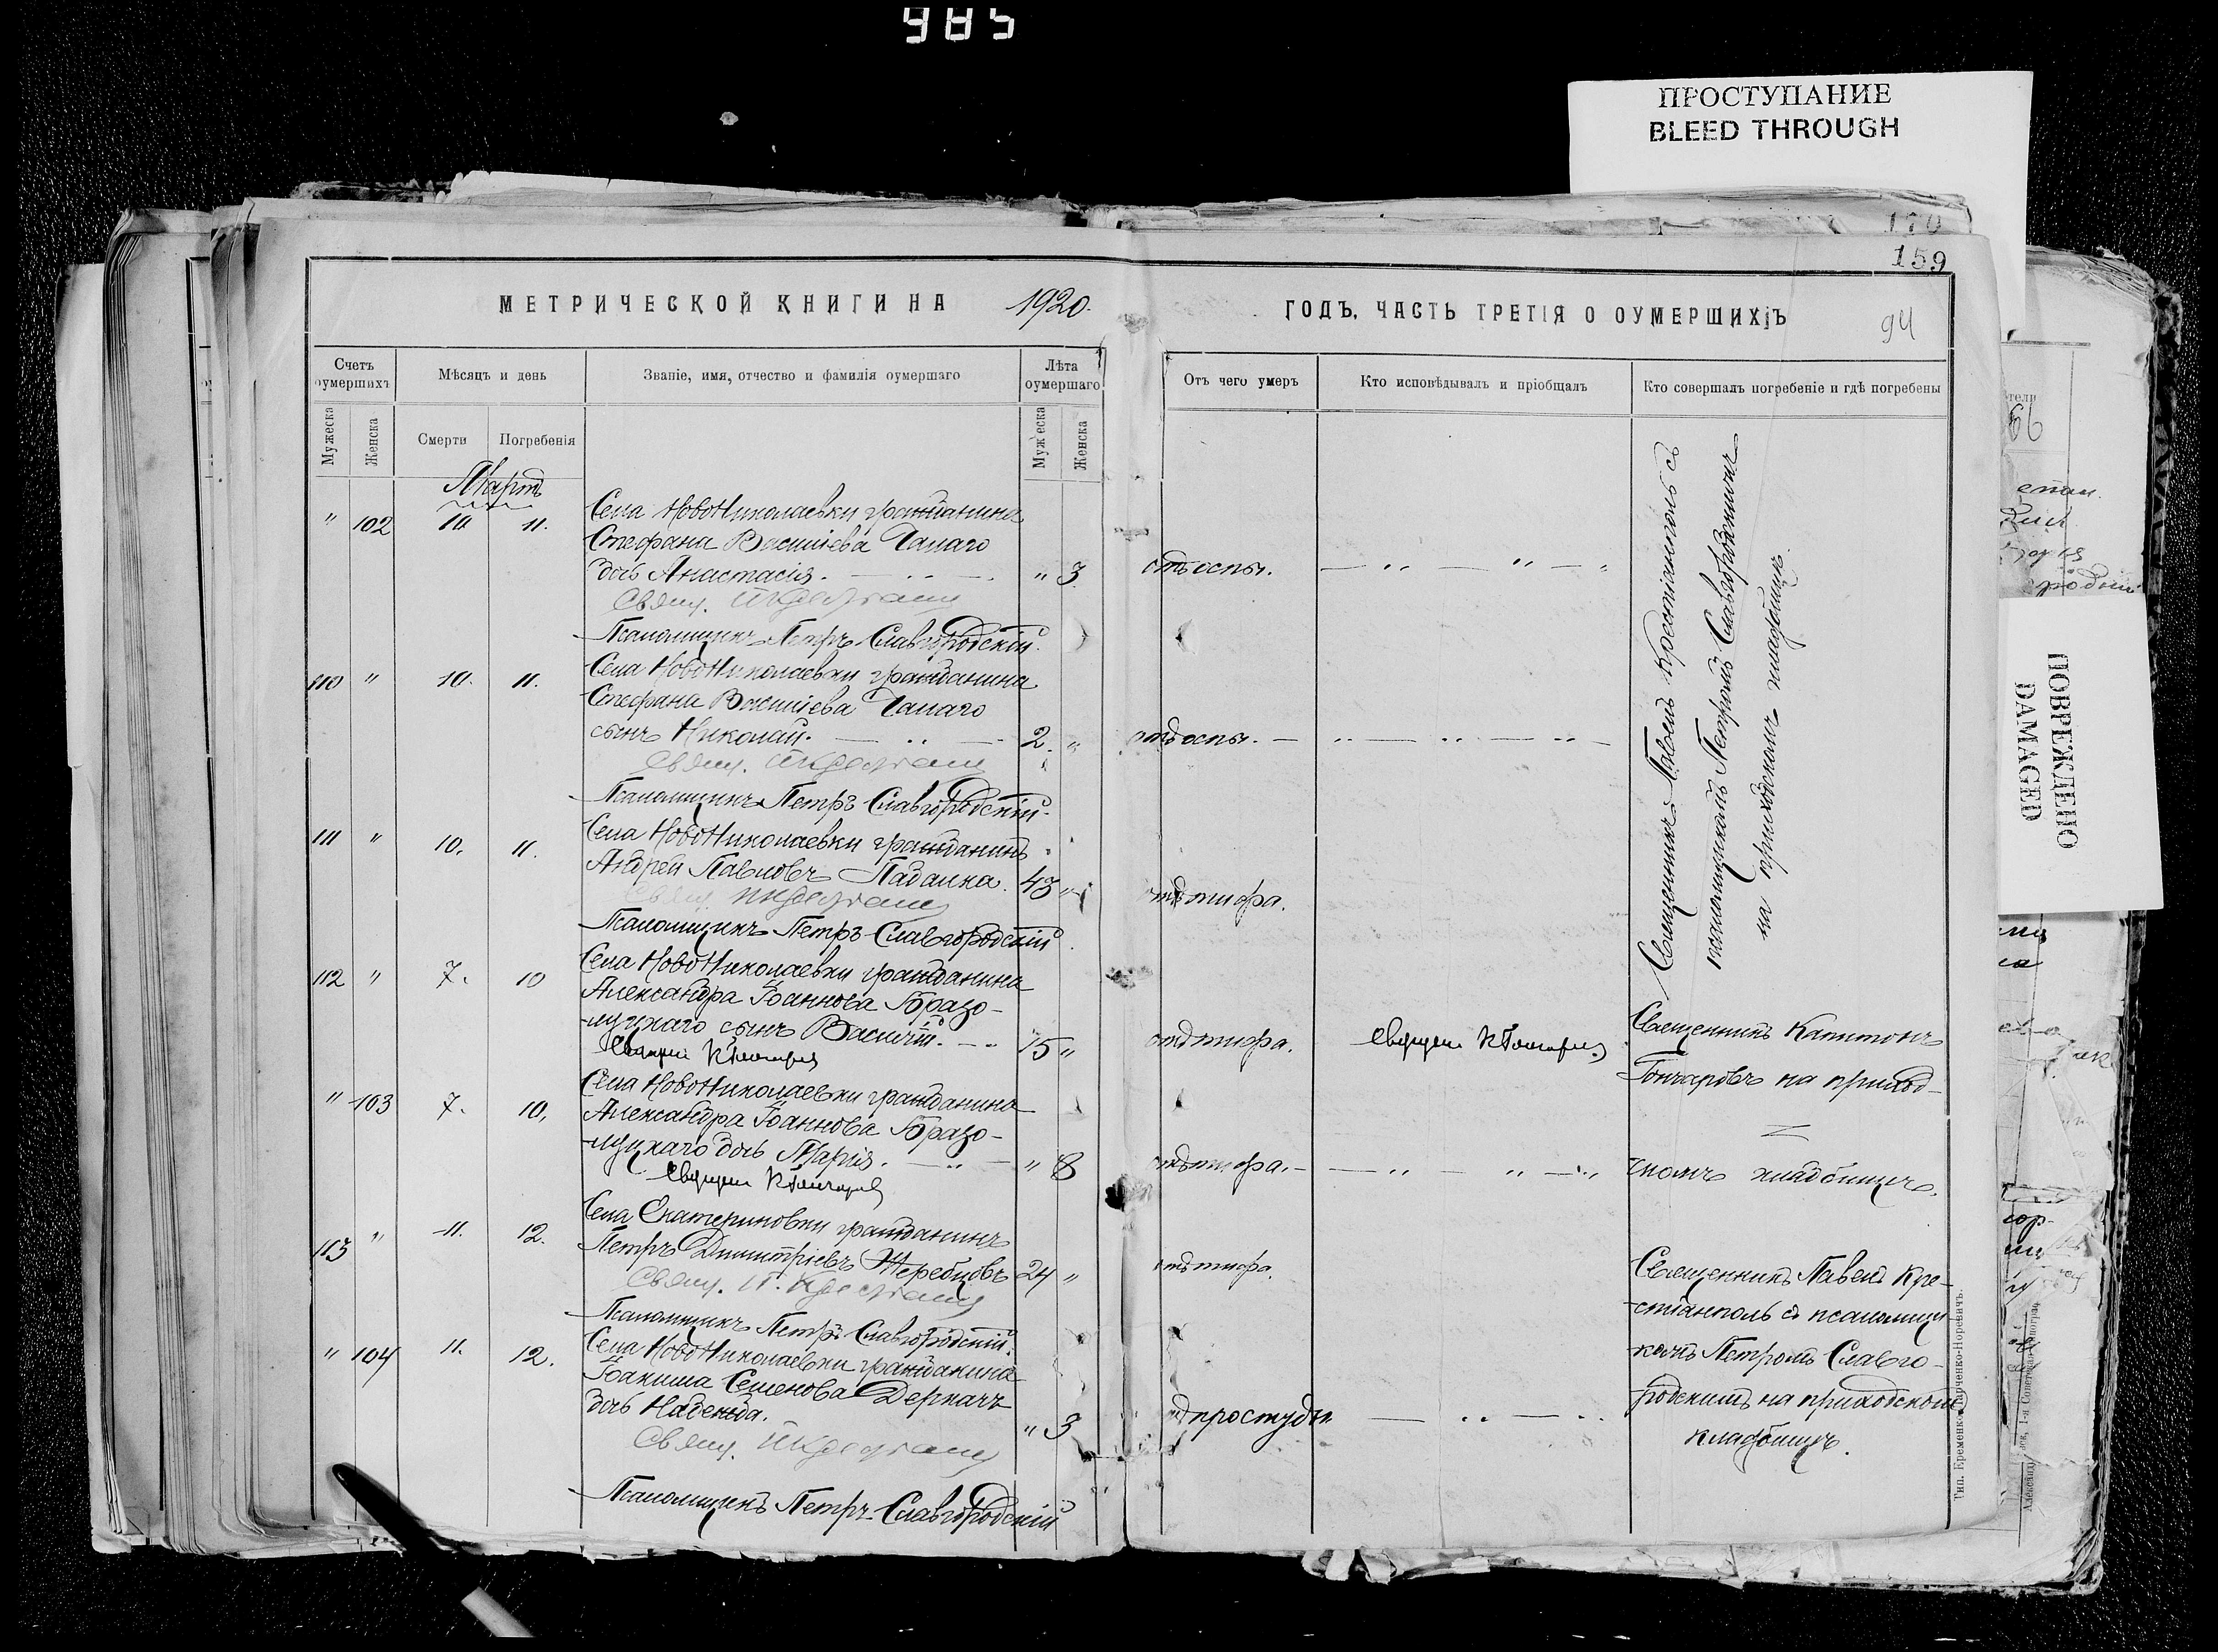 985
ПРОСТУПАНИЕ
BLEED THROUGH
170
159
94
МЕТРИЧЕСКОЙ КНИГИ НА 1920.
ГОДЪ, ЧАСТЬ ТРЕТІЯ О ОУМЕРШИХЪ
Счетъ оумершихъ
Мѣсяцъ и день
Званіе, имя, отчество и фамилія оумершаго
Лѣта оумершаго
Отъ чего умеръ
Кто исповѣдывалъ и пріобщалъ
Кто совершалъ погребеніе и гдѣ погребены
Мужеска
Женска
Смерти
Погребенія
Мужеска
Женска
Мартъ
" 102 10 11. Села НовоНиколаевки гражданина
Стефана Васильева
дочь Анастасія. " 3 отъ оспы.
Свящ.
Псаломщикъ Петръ Славгородскій.
110 " 10. 11. Села НовоНиколаевки гражданина
Стефана Васильева
сынъ Николай. 2. " отъ оспы.
Свящ.
Псаломщикъ Петръ Славгородскій.
111 " 10. 11. Села НовоНиколаевки гражданинъ
Андрей Павловъ Падалка. 43 " отъ тифа.
Псаломщикъ Петръ Славгородскій
Священникъ Павелъ Крестіанполь съ
псаломщикомъ Петромъ Славгородскимъ
на приходскомъ кладбищѣ.
112 " 7. 10 Села НовоНиколаевки гражданина
Александра Іоаннова
сынъ Василій. 15 " отъ тифа.
Священникъ Капитонъ
Гончаровъ на приход-
" 103 7. 10. Села НовоНиколаевки гражданина
Александра Іоаннова
дочь Марія. " 8 отъ тифа.
скомъ кладбищѣ.
113 " 11. 12. Села Екатериновки гражданинъ
Петръ Димитріевъ Жеребцовъ 24 " отъ тифа.
Свящ. П.
Псаломщикъ Петръ Славгородскій.
Священникъ Павелъ Кре-
стіанполь съ псаломщи
комъ Петромъ Славго-
родскимъ на приходскомъ
кладбищѣ.
" 104 11. 12. Села НовоНиколаевки гражданина
Іоакима Семенова Деркачъ
дочь Надежда. " 3 отъ простуды
Свящ.
Псаломщикъ Петръ Славгородскій
66
ПОВРЕЖДЕНО
DAMAGED